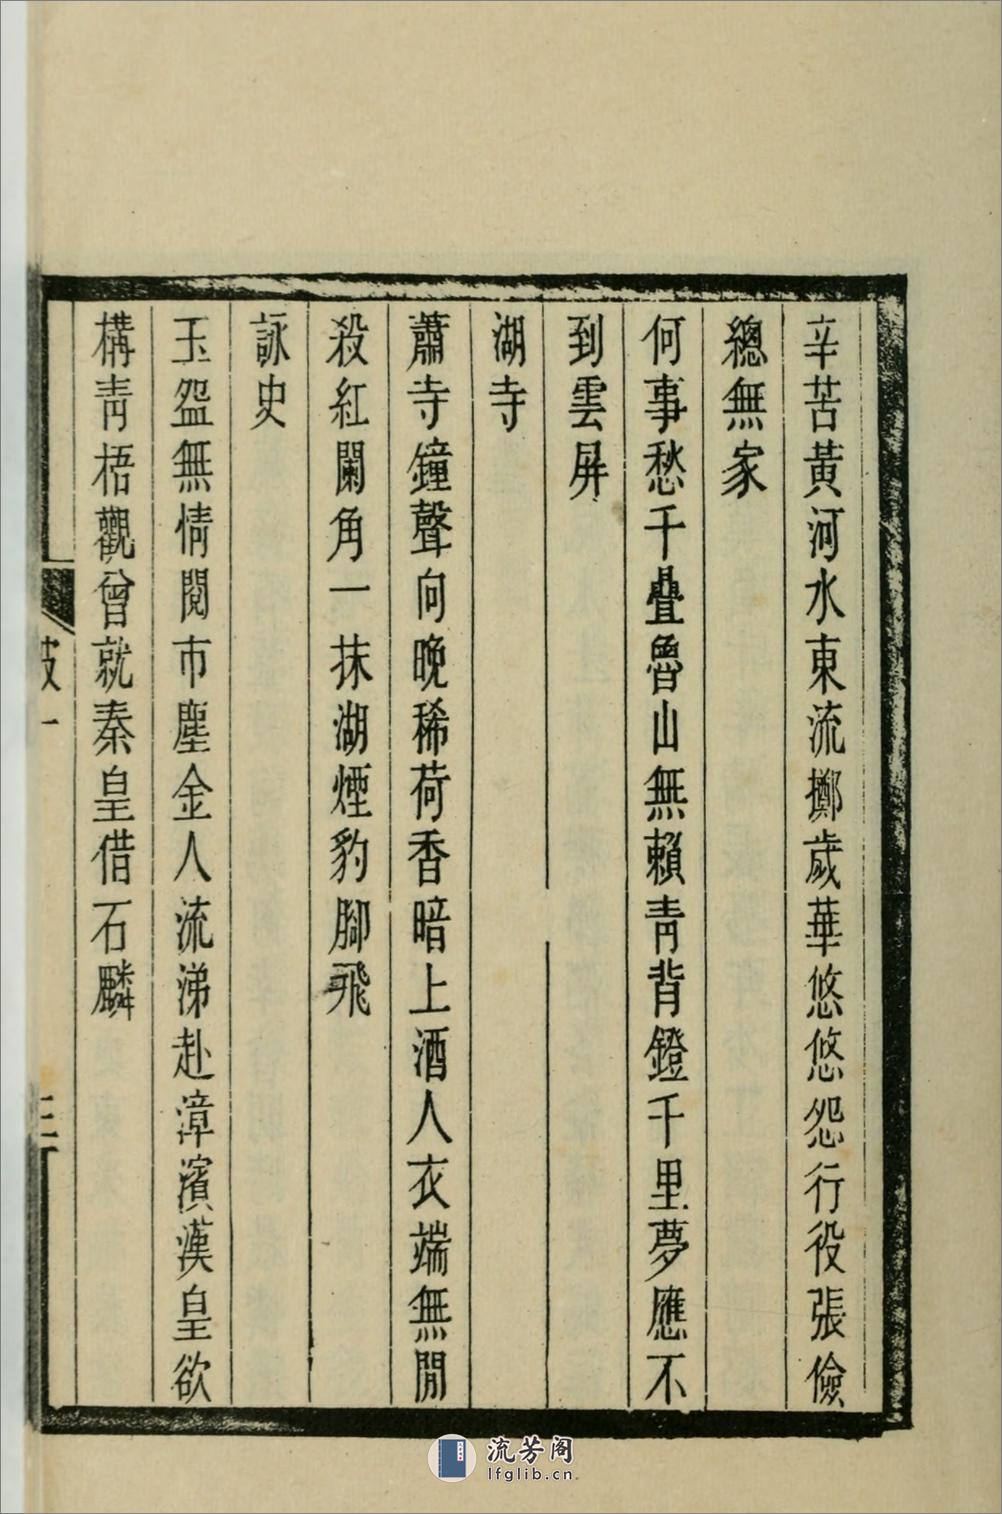 辛苦黃河水東流擲歲華悠悠怨行役張儉
總無家
何事愁千疊魯山無賴青背鐙千里夢應不
到雲屏
湖寺
蕭寺鐘聲向晚稀荷香暗上酒人衣端無閒
殺紅闌角一抹湖煙豹腳飛
詠史
玉盌無情閱市塵金人流涕赴漳濱漢皇欲
構靑梧觀曾就秦皇借石麟
三
流芳阁
lfglib.cn